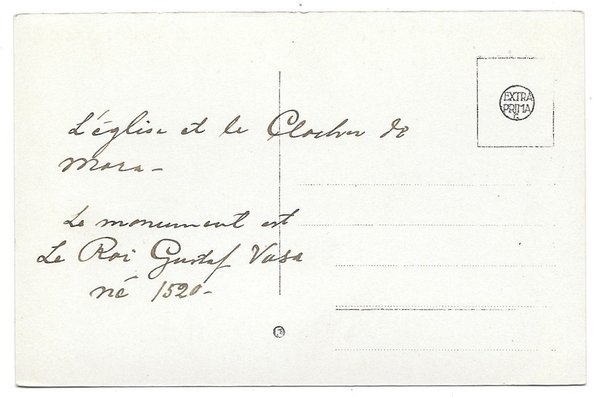 EXTRA
PRIMA
L'église et le Clocher de
Mora -
Le monument est
Le Roi Gustaf Vasa
né 1520 -